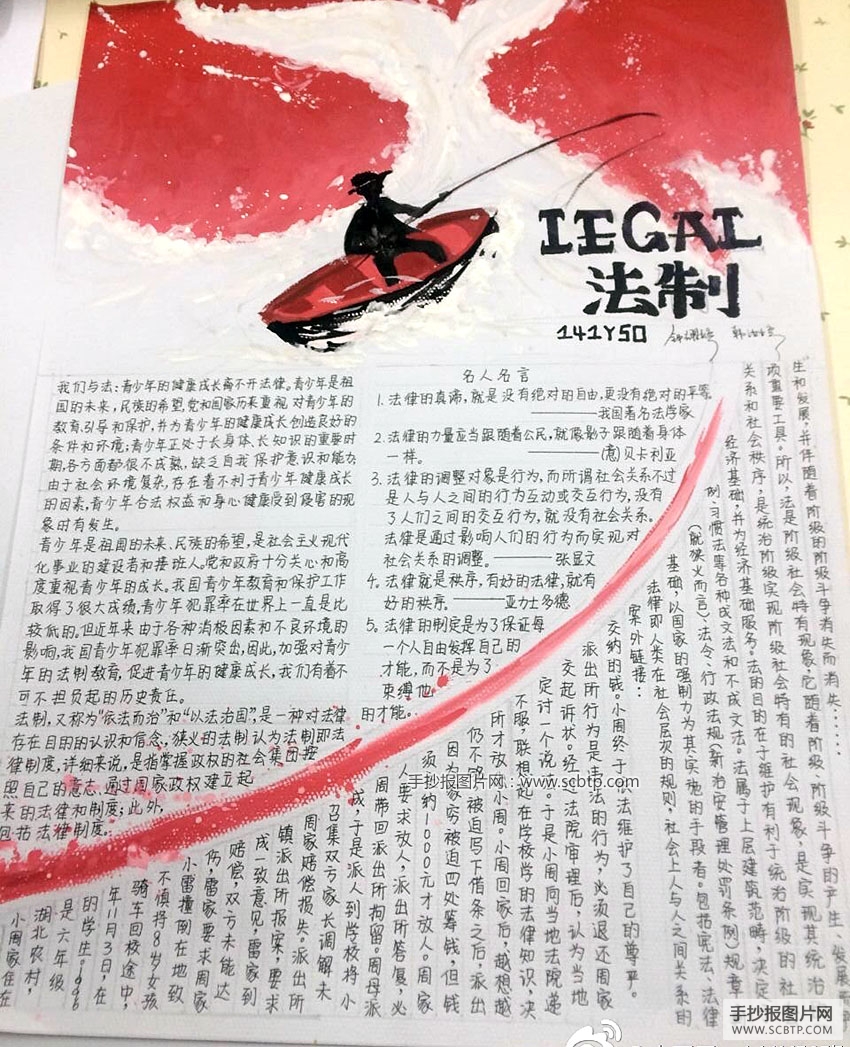 LEGAL
法制
141Y50
我们与法:青少年的健康成长离不开法律。青少年是祖
国的未来,民族的希望,党和国家历来重视对青少年的
教育,引导和保护,并为青少年的健康成长创造良好的
条件和环境;青少年正处于长身体,长知识的重要时
期,各方面都很不成熟,缺乏自我保护意识和能力,
由于社会环境复杂,存在着不利于青少年健康成长
的因素,青少年合法权益和身心健康受到侵害的现
象时有发生。
青少年是祖国的未来、民族的希望,是社会主义现代
化事业的建设者和接班人。党和政府十分关心和高
度重视青少年的成长。我国青少年教育和保护工作
取得了很大成绩,青少年犯罪率在世界上一直是比
较低的。但近年来由于各种消极因素和不良环境的
影响,我国青少年犯罪率日渐突出,因此,加强对青少
年的法制教育,促进青少年的健康成长,我们有着不
可不担负起的历史责任。
法制,又称为“依法而治”和“以法治国”,是一种对法律
存在目的的认识和信念;狭义的法制认为法制即法
律制度,详细来说,是指掌握政权的社会集团按
照自己的意志、通过国家政权建立起
来的法律和制度;此外,
包括法律制度。
名人名言
1.法律的真谛,就是没有绝对的自由,更没有绝对的平等。
————我国著名法学家
2.法律的力量应当跟随着公民,就像影子跟随着身体
一样。 ————(意)贝卡利亚
3.法律的调整对象是行为,而所谓社会关系不过
是人与人之间的行为互动或交互行为,没有
了人们之间的交互行为,就没有社会关系。
法律是通过影响人们的行为而实现对
社会关系的调整。————张显文
4.法律就是秩序,有好的法律,就有
好的秩序。————亚力士多德
5.法律的制定是为了保证每
一个人自由发挥自己的
才能,而不是为了
束缚他
的才能。
生和发展,并伴随着阶级的阶级斗争消失而消失……
项重要工具。所以,法是阶级社会特有现象;它随着阶级、阶级斗争的产生、发展而产
关系和社会秩序,是统治阶级实现阶级社会特有的社会现象,是实现其统治的
经济基础,并为经济基础服务。法的目的在于维护有利于统治阶级的社
例、习惯法等各种成文法和不成文法。法属于上层建筑范畴,决定
(就狭义而言)法令、行政法规(新治安管理处罚条例)规章
基础,以国家的强制力为其实施的手段者。包括宪法、法律
法律即人类在社会层次的规则,社会上人与人之间关系的
案外链接:
交纳的钱。小周终于 法维护了自己的尊严。
派出所行为是违法的行为,必须退还周家
交起诉状。经 法院审理后,认为当地
定讨一个说法。于是小周向当地法院递
不服,联想起在学校学的法律知识,决
所才放了小周。小周回家后,越想越
仍不 被迫写下借条之后,派出
因为家穷被迫四处筹钱,但钱
须 纳1000元才放人。周家
人要求放人,派出所答复,必
周带回派出所拘留。周母派
成,于是派人到学校将小
召集双方家长调解未
周家赔偿损失。派出所
镇派出所报案,要求
成一致意见,雷家到
赔偿,双方未能达
伤,雷家要求周家
小雷撞倒在地致
不慎将8岁女孩
骑车回校途中,
年11月3日,在
的学生,1996
是六年级
湖北农村,
小周家住在
手抄报图片网:www.scbtp.com
手抄报图片网
WWW.SCBTP.COM